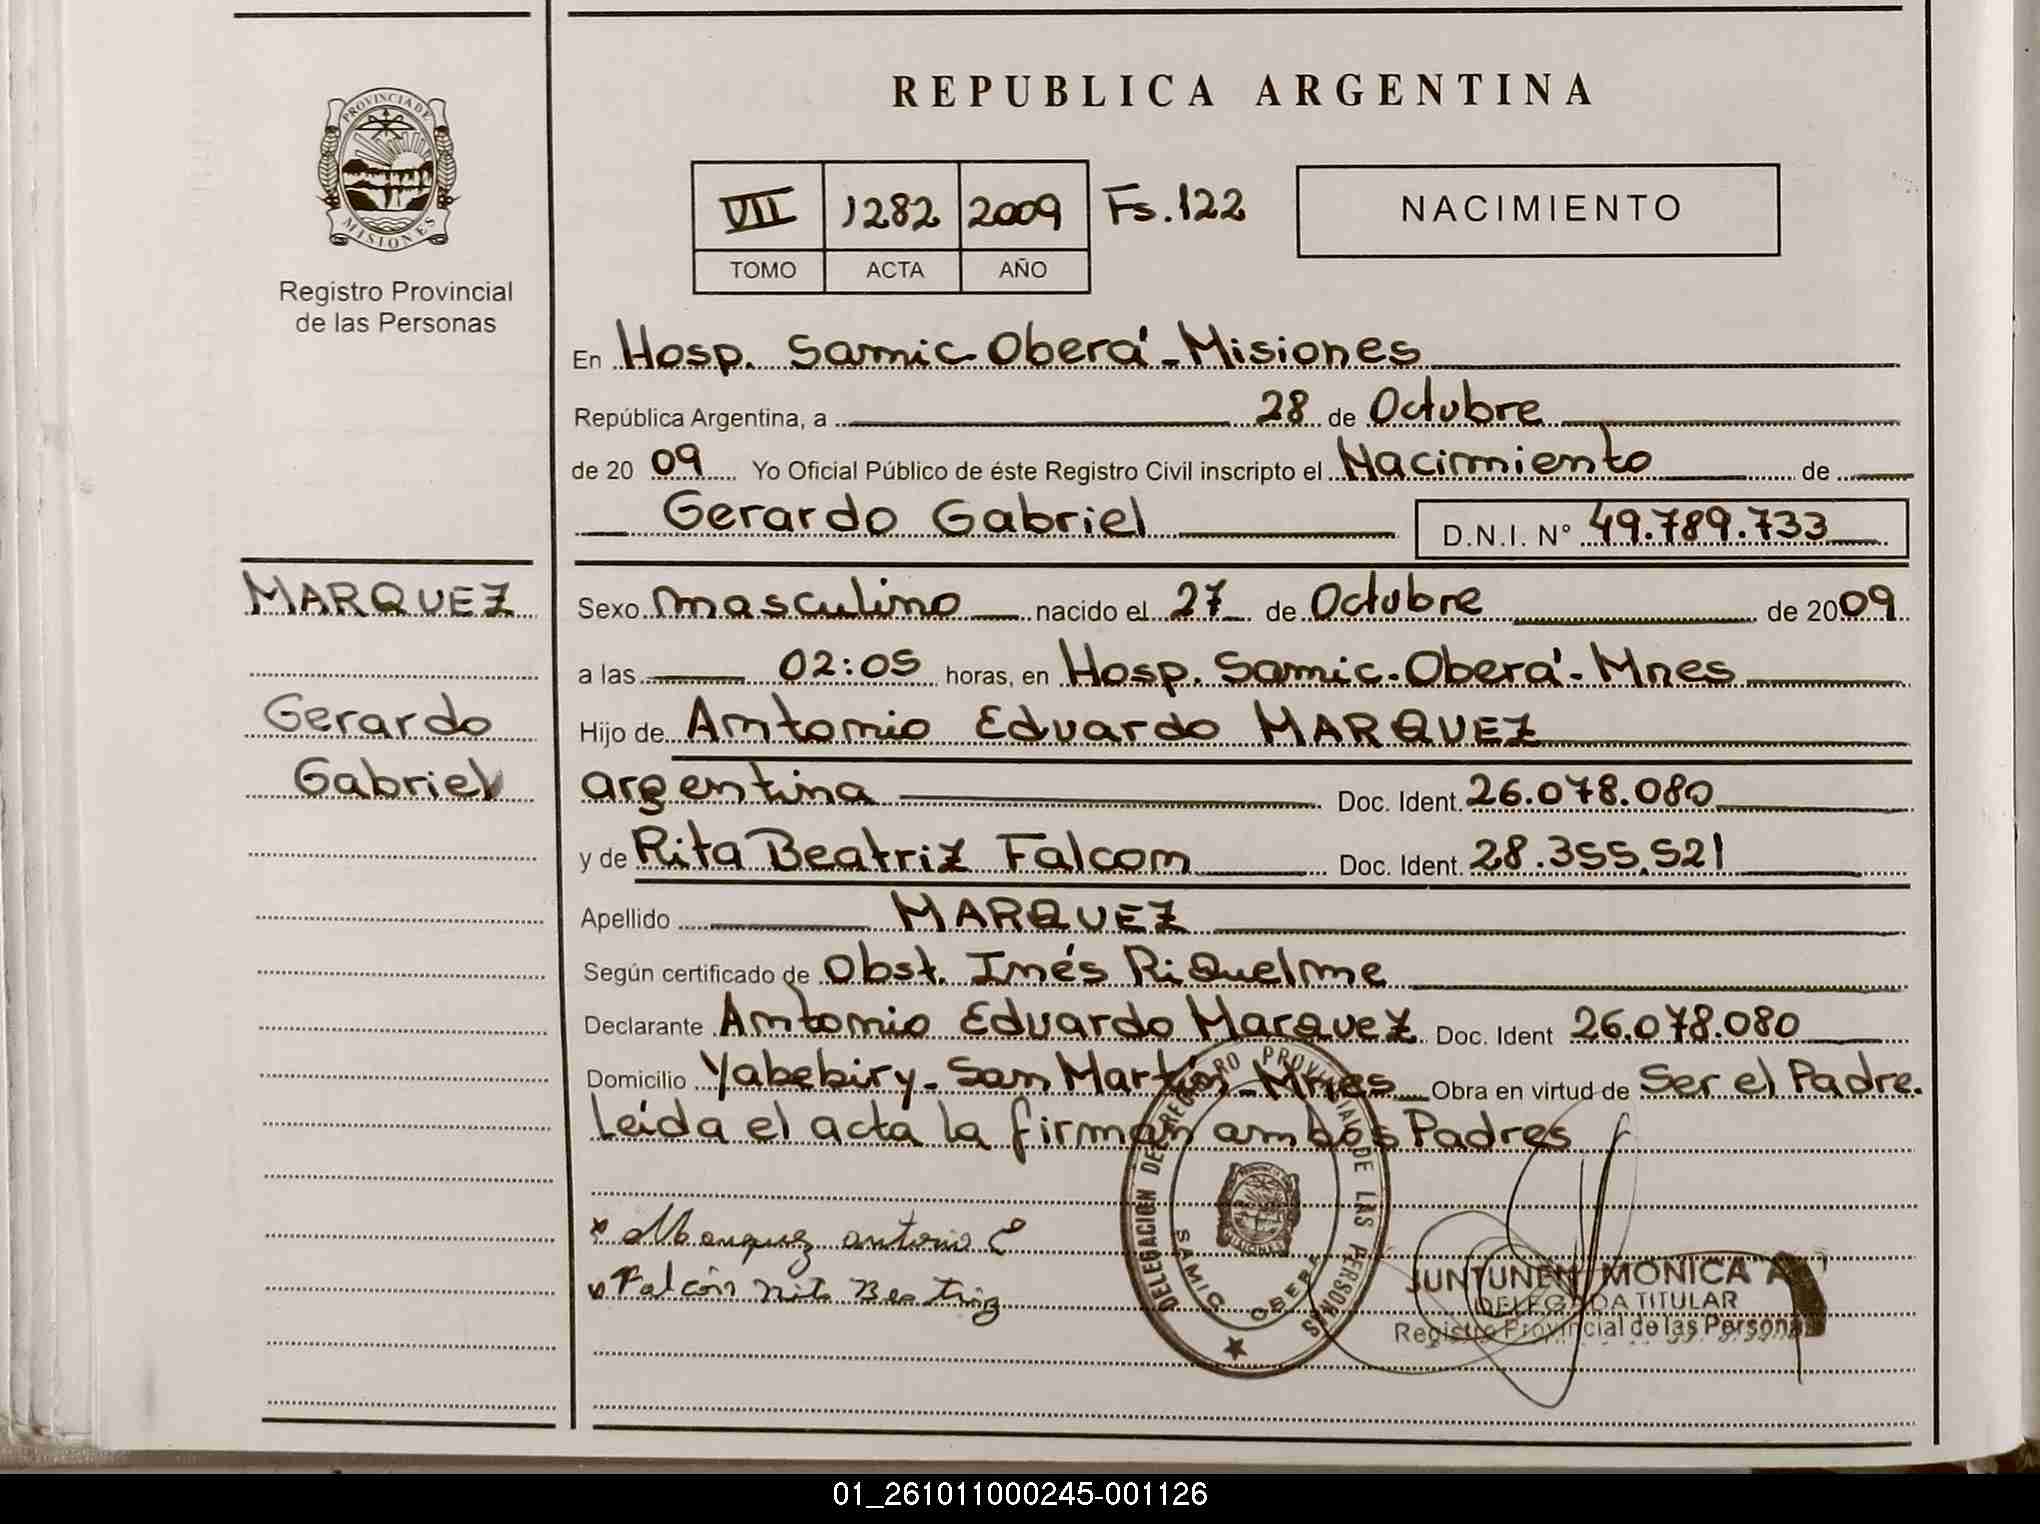 REPUBLICA ARGENTINA
PROVINCIA DE
MISIONES
Registro Provincial
de las Personas
VII 1282 2009 Fs. 122
TOMO ACTA AÑO
NACIMIENTO
En Hosp. Samic Oberá - Misiones
República Argentina, a 28 de Octubre
de 20 09 Yo Oficial Público de éste Registro Civil inscripto el Nacimiento de
Gerardo Gabriel D.N.I. N° 49.789.733
MARQUEZ
Gerardo
Gabriel
Sexo masculino nacido el 27 de Octubre de 2009
a las 02:05 horas, en Hosp. Samic. Oberá - Mnes
Hijo de Antonio Eduardo MARQUEZ
argentina Doc. Ident. 26.078.080
y de Rita Beatriz Falcon Doc. Ident. 28.355.521
Apellido MARQUEZ
Según certificado de Obst. Inés RiQuelme
Declarante Antonio Eduardo Marquez Doc. Ident 26.078.080
Domicilio Yabebiry - San Martín - Mnes Obra en virtud de Ser el Padre.
Leida el acta la firman ambos Padres
x Marquez antonio E
x Falcón Rita Beatriz
DELEGACION DEL REGISTRO PROVINCIAL DE LAS PERSONAS
SAMIC OBERA
JUNTUNEN MONICA A
DELEGADA TITULAR
Registro Provincial de las Personas
01_261011000245-001126